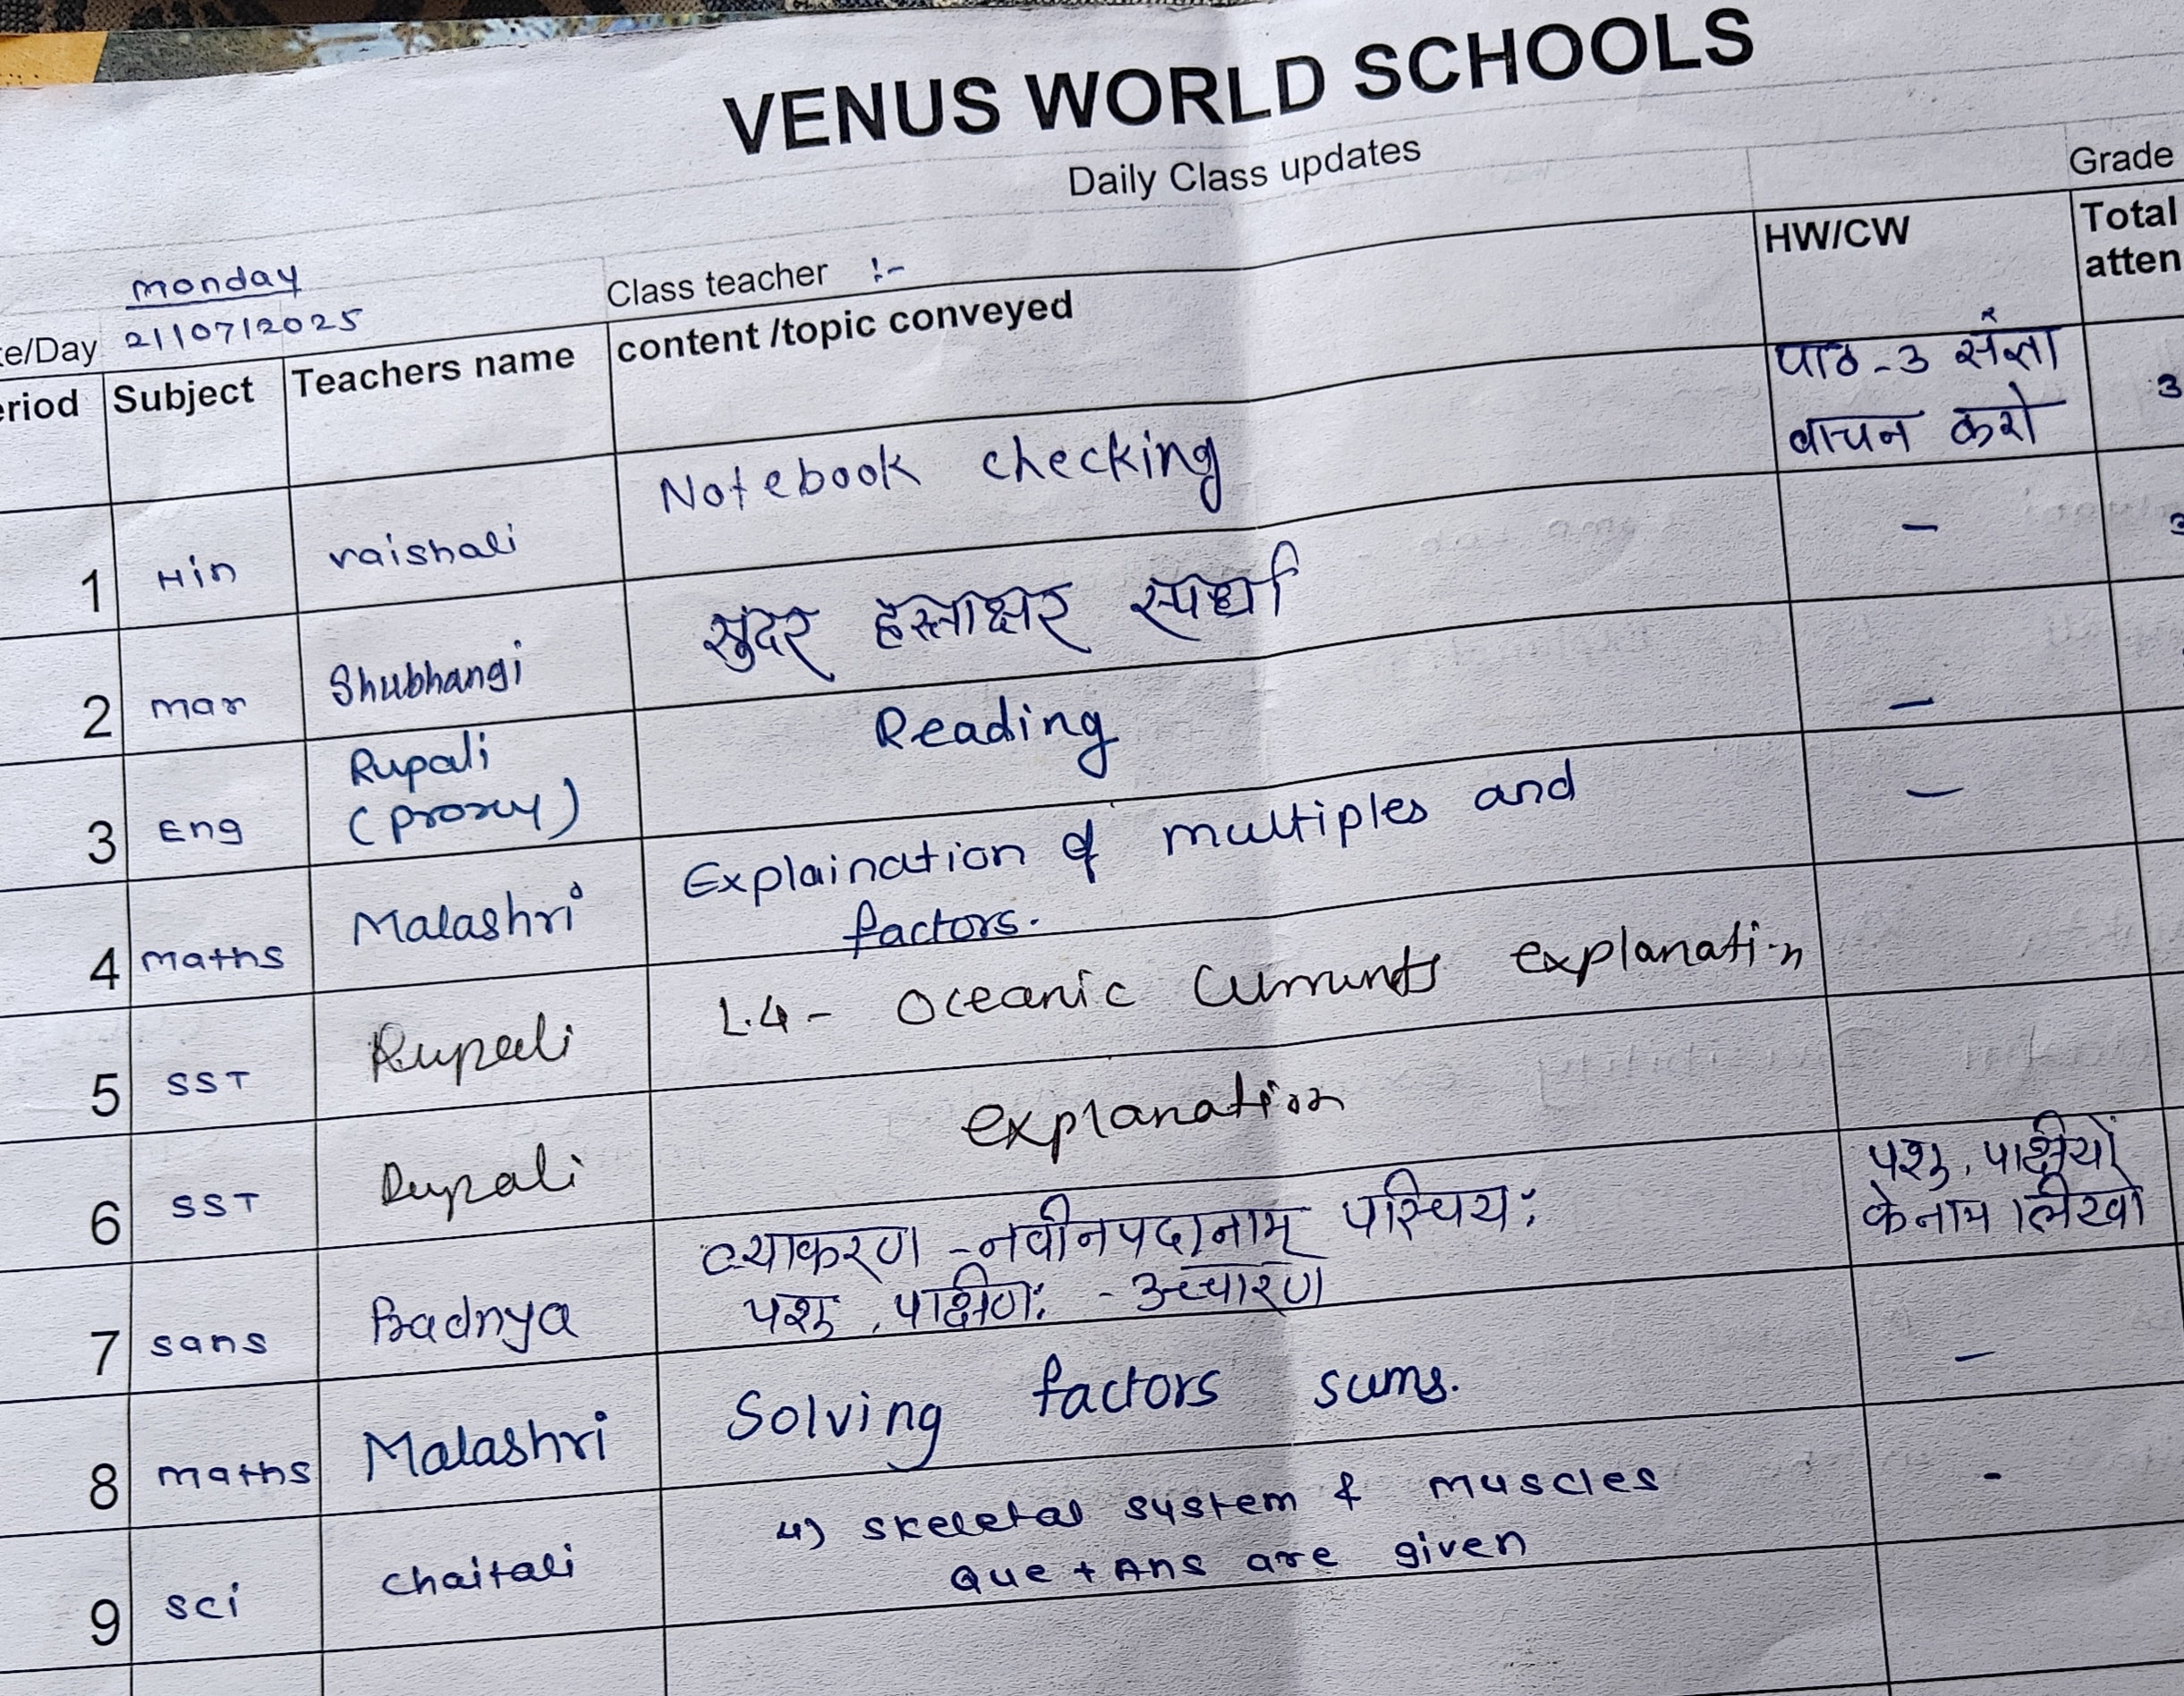 VENUS WORLD SCHOOLS
Daily Class updates
Grade
te/Day monday Class teacher :-
21/07/2025
eriod Subject Teachers name content /topic conveyed HW/CW Total atten
1 Hin vaishali Notebook checking पाठ-3 संज्ञा 3
वाचन करो
2 mar Shubhangi सुंदर हस्ताक्षर स्पर्धा - 3
3 Eng Rupali Reading -
(proxy)
4 maths Malashri Explaination of multiples and -
factors.
5 SST Rupali L.4 - Oceanic Currents explanation
6 SST Rupali explanation
7 sans Pradnya व्याकरण -नवीनपदानाम् परिचय: पशु, पक्षीयों
पशु, पक्षीण: - उच्चारण के नाम लिखो
8 maths Malashri Solving factors sums. -
9 sci chaitali 4) skeletal system & muscles -
Que + Ans are given